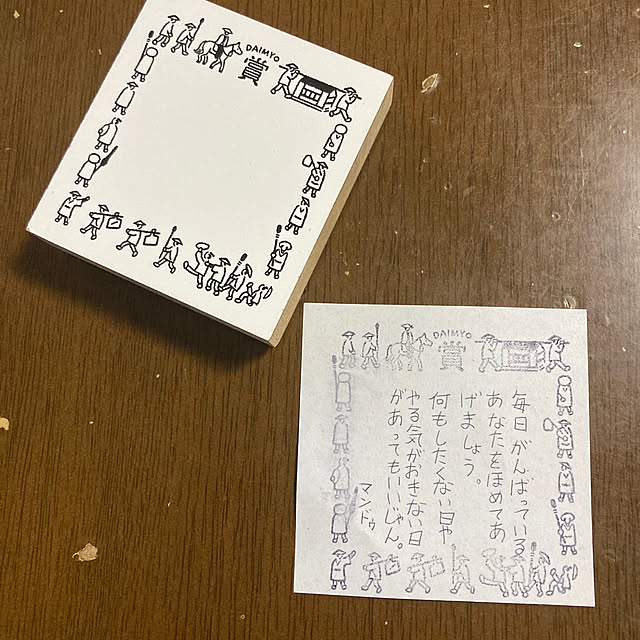 DAIMYO
賞
DAIMYO
賞
毎日がんばっている
あなたをほめてあ
げましょう。
何もしたくない日や
やる気がおきない日
があってもいいじゃん。
マンドゥ